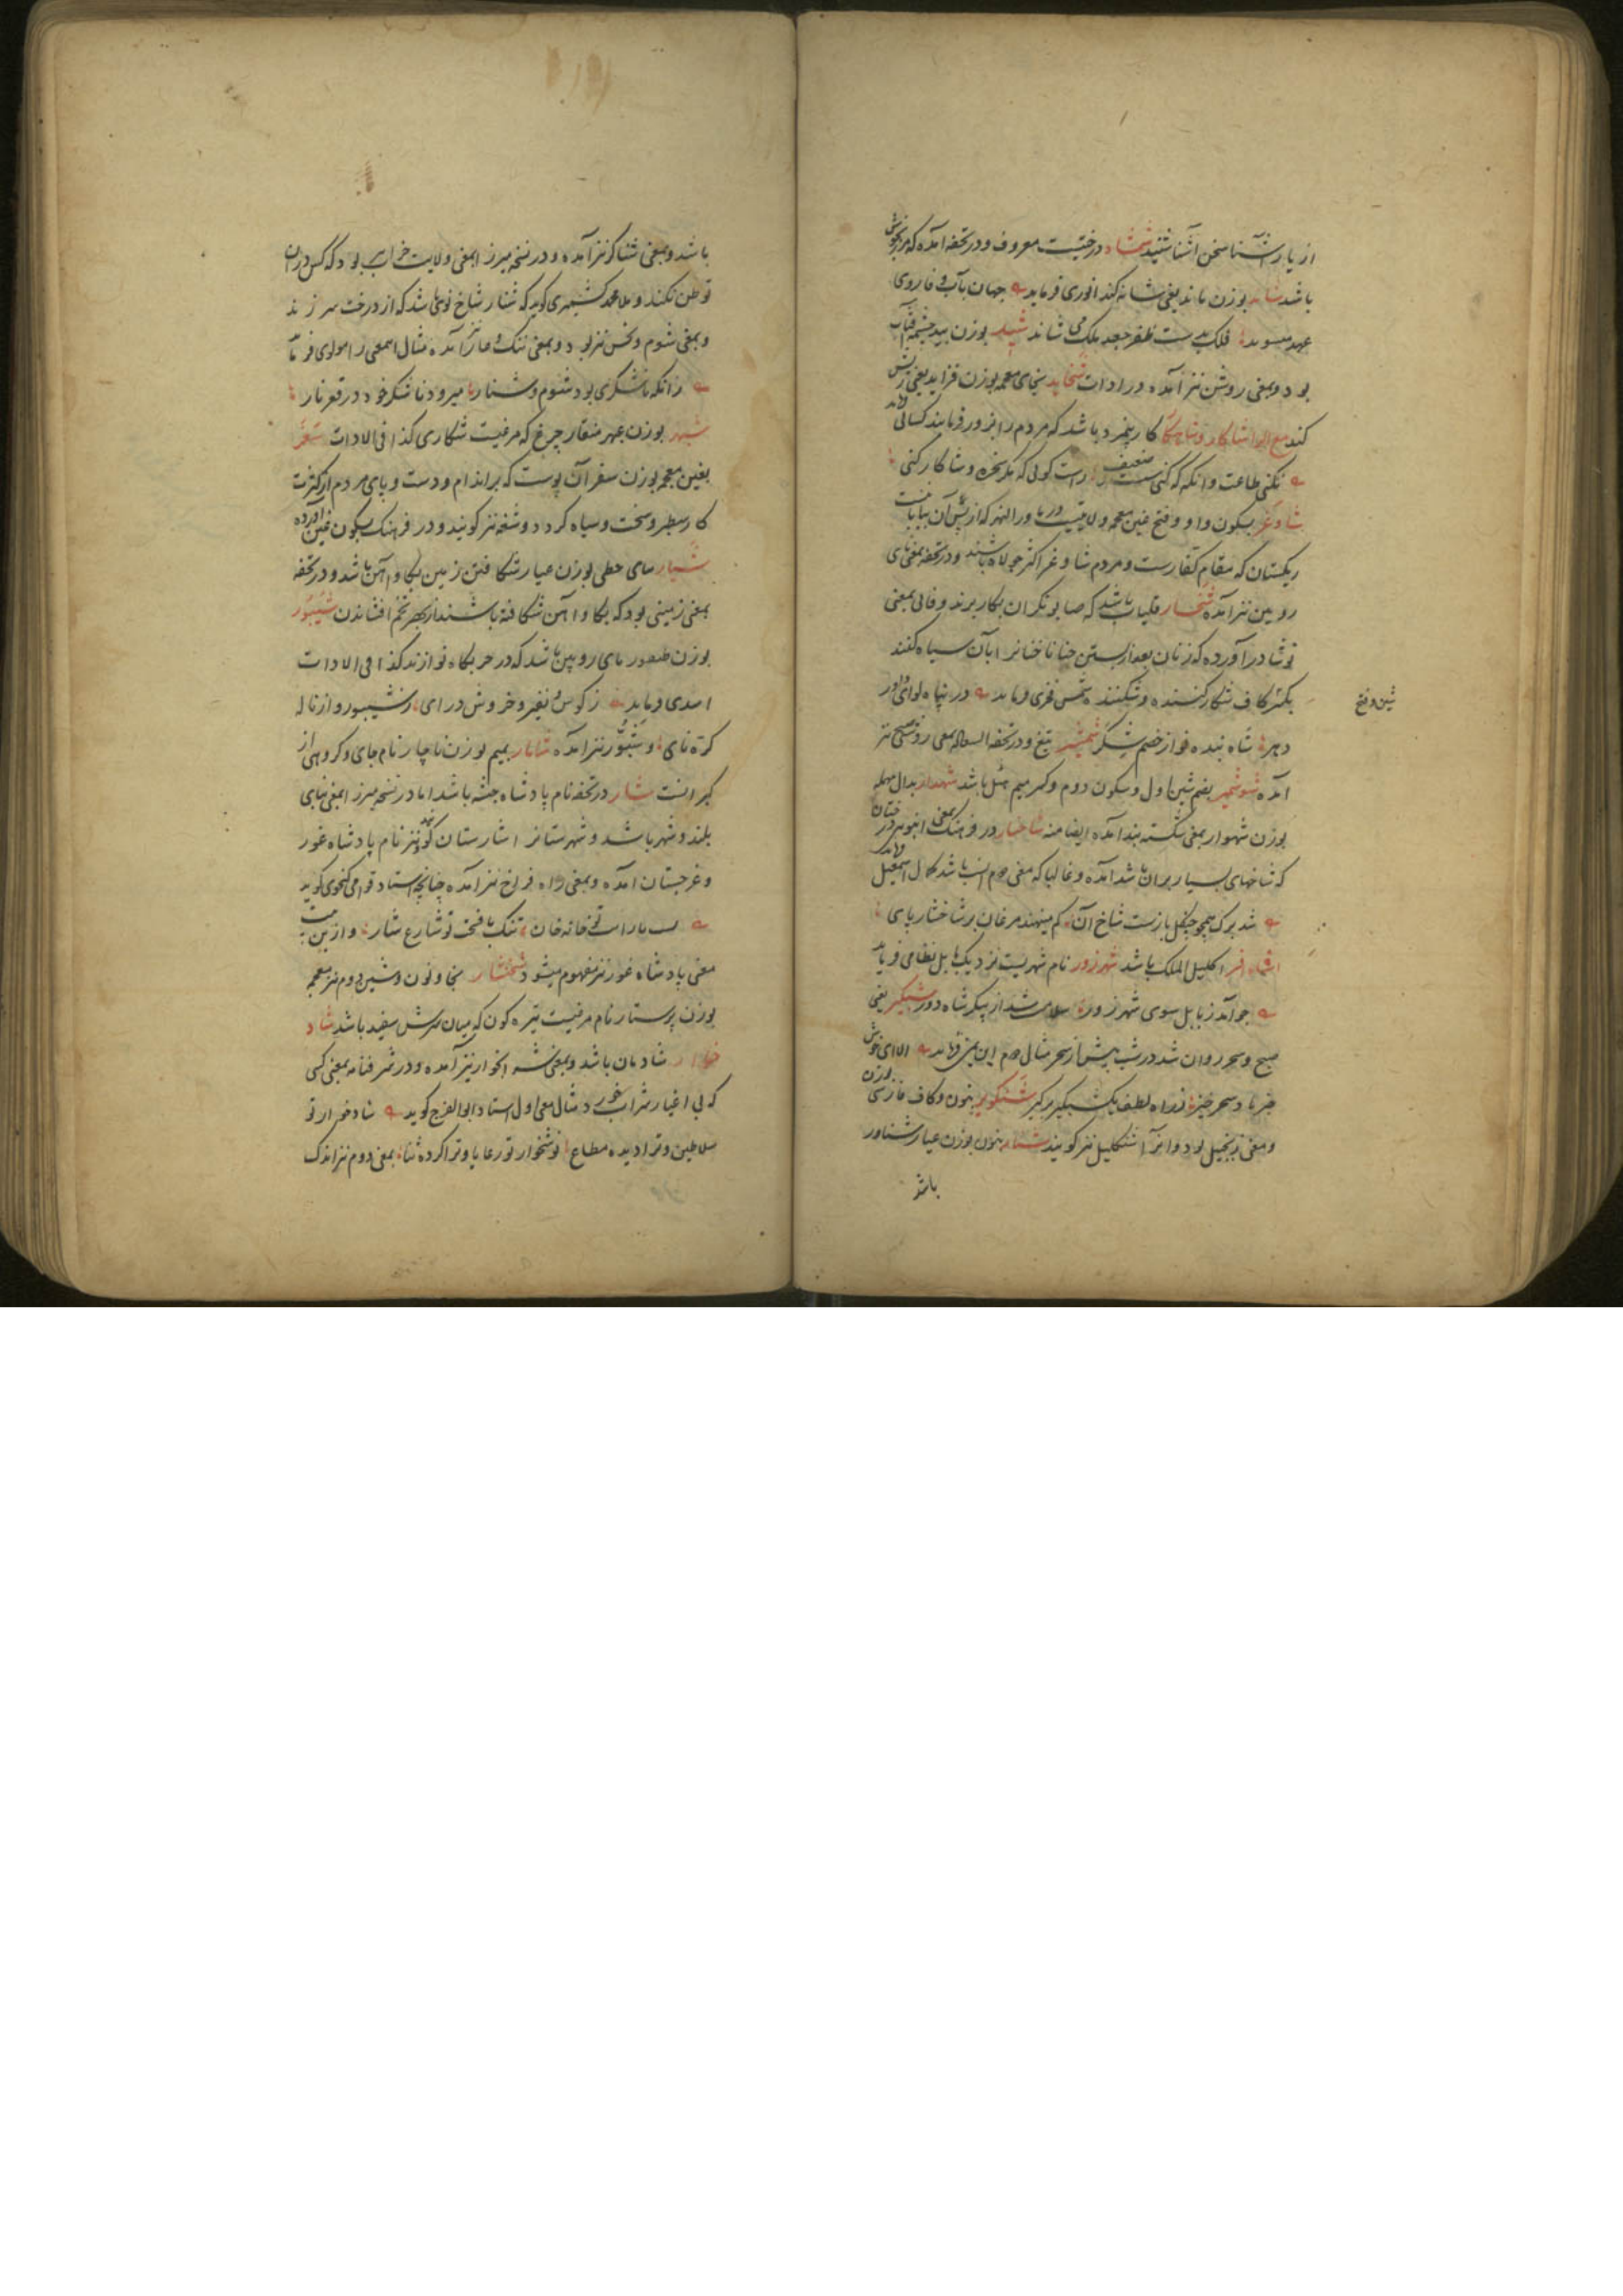 از یار آشنا سخن آشنا شنید شمشاد درختیست معروف و در تحفه آمده که مرزنگوش
باشد شاند بوزن ماند یعنی شانه کند انوری فرماید جهان بآب وفا روی
عهد میشوید فلک بدست ظفر جعد ملک می شاند شید بوزن بید چشمه آفتاب
بود و بمعنی روشن نیز آمده در ادات شخاید بخای معجمه بوزن فزاید یعنی ریش
کند مع الرا شاکار و شاهکار کار بیمزد باشد که مردم را بزور فرمایند کسائی
نکنی طاعت و آنگه که کنی سست و ضعیف راست گوئی که مگر سخره و شاکار کنی
شاوغر بسکون واو و فتح غین معجمه ولایتیست در ماوراالنهر که از پس آن بیابانست
ریکستان که مقام کفارست و مردم شاوغر اکثر جولاه باشند و در تحفه بمعنی نای
رویین نیز آمده شخار قلیا باشد که صابونگران بکار برند و فائی بمعنی
نوشادر آورده که زنان بعد از بستن حنا ناخنانرا بآن سیاه کنند
بکسر کاف شکار کننده و شکننده شمس فخری فرماید در پناه لوای داور
شین و فتح
دهر شاه تیده نواز خصم شکر شمشیر تیغ و در تحفه السعاده بمعنی روشنی صبح نیز
آمده شوشمیر بضم شین اول و سکون دوم و کسر میم هیل باشد شهدار بدال مهمله
بوزن شهوار بمعنی شکسته بند آمده ایضا منه شاخسار در فرهنگ بمعنی انبوهی درختان
که شاخهای بسیار بر آن باشد آمده و غالبا که معنی دوم انسب باشد کمال اسمعیل
شد برک همچو چنگل بازست شاخ آن کم مینهند مرغان بر شاخسار پای
اکلیل الملک باشد شهرزور نام شهریست نزدیک بابل نظامی فرماید
چو آمد ز بابل سوی شهر زور سلامت شد از پیکر شاه دور شبگیر یعنی
صبح و سحر روان شد در شب پیش از سحر مثال دوم ابن یمین الا ای خوش
خبر باد سحر خیز ز راه لطف یک شبگیر برگیر شنگویر بنون و کاف فارسی بوزن
و معنی زنجبیل بود و آنرا شنگلیل نیز گویند شنار بنون بوزن عیار شناور
باشد
باشد و بمعنی شناگر نیز آمده و در نسخه میرزا بمعنی ولایت خراب بود که کس در آن
توطن نکند و ملا محمد کشمیری گوید که شنار شاخ نوی باشد که از درخت سر زند
و بمعنی شوم و نحس نیز بود و بمعنی ننگ و عار نیز آمده مثال اسمعنی را مولوی فرماید
زانکه ناشکری بود شوم و شنار میرود ناشکر خود در قعر نار
شهر بوزن مهر منقار چرغ که مرغیست شکاری کذا فی الادات شغر
بغین معجمه بوزن سفر آن پوست که بر اندام و دست و پای مردم از کثرت
کار سطبر و سخت و سیاه گردد و شغه نیز گویند و در فرهنگ بسکون غین آورده
شیار بیای حطی بوزن عیار شکافتن زمین بگاو آهن باشد و در تحفه
بمعنی زمینی بود که بگاو آهن شکافته باشند از بهر تخم افشاندن شیپور
بوزن طنبور نای رویین باشد که در حربگاه نوازند کذا فی الادات
اسدی فرماید ز کوس و نفیر و خروش درای ز شیپور و از ناله
کره نای و شپور نیز آمده شامار بمیم بوزن ناچار نام جای و گروهی از
کبرانست شار در تحفه نام پادشاه حبشه باشد اما در نسخه میرزا بمعنی بنای
بلند و شهر باشد و شهرستانرا شارستان گویند نیز نام پادشاه غور
و غرجستان آمده و بمعنی راه فراخ نیز آمده چنانچه استاد قوامی گنجوی گوید
تنگ بافت تو شارع شار و ازین بیت
معنی پادشاه غور نیز مفهوم میشود شخنشار بخا و نون و شین دوم نیز معجمه
بوزن پرستار نام مرغیست تیره گون که میان سرش سفید باشد شاد
خوار شادمان باشد و بمعنی شه انخوار نیز آمده و در شرفنامه بمعنی کسی
که بی اغیار شراب خورد مثال معنی اول استاد ابوالفرج گوید شادخوار تو
سلاطین و ترا دیده مطاع نوشخوار تو رعایا و ترا کرده ثنا بمعنی دوم نیز اندک